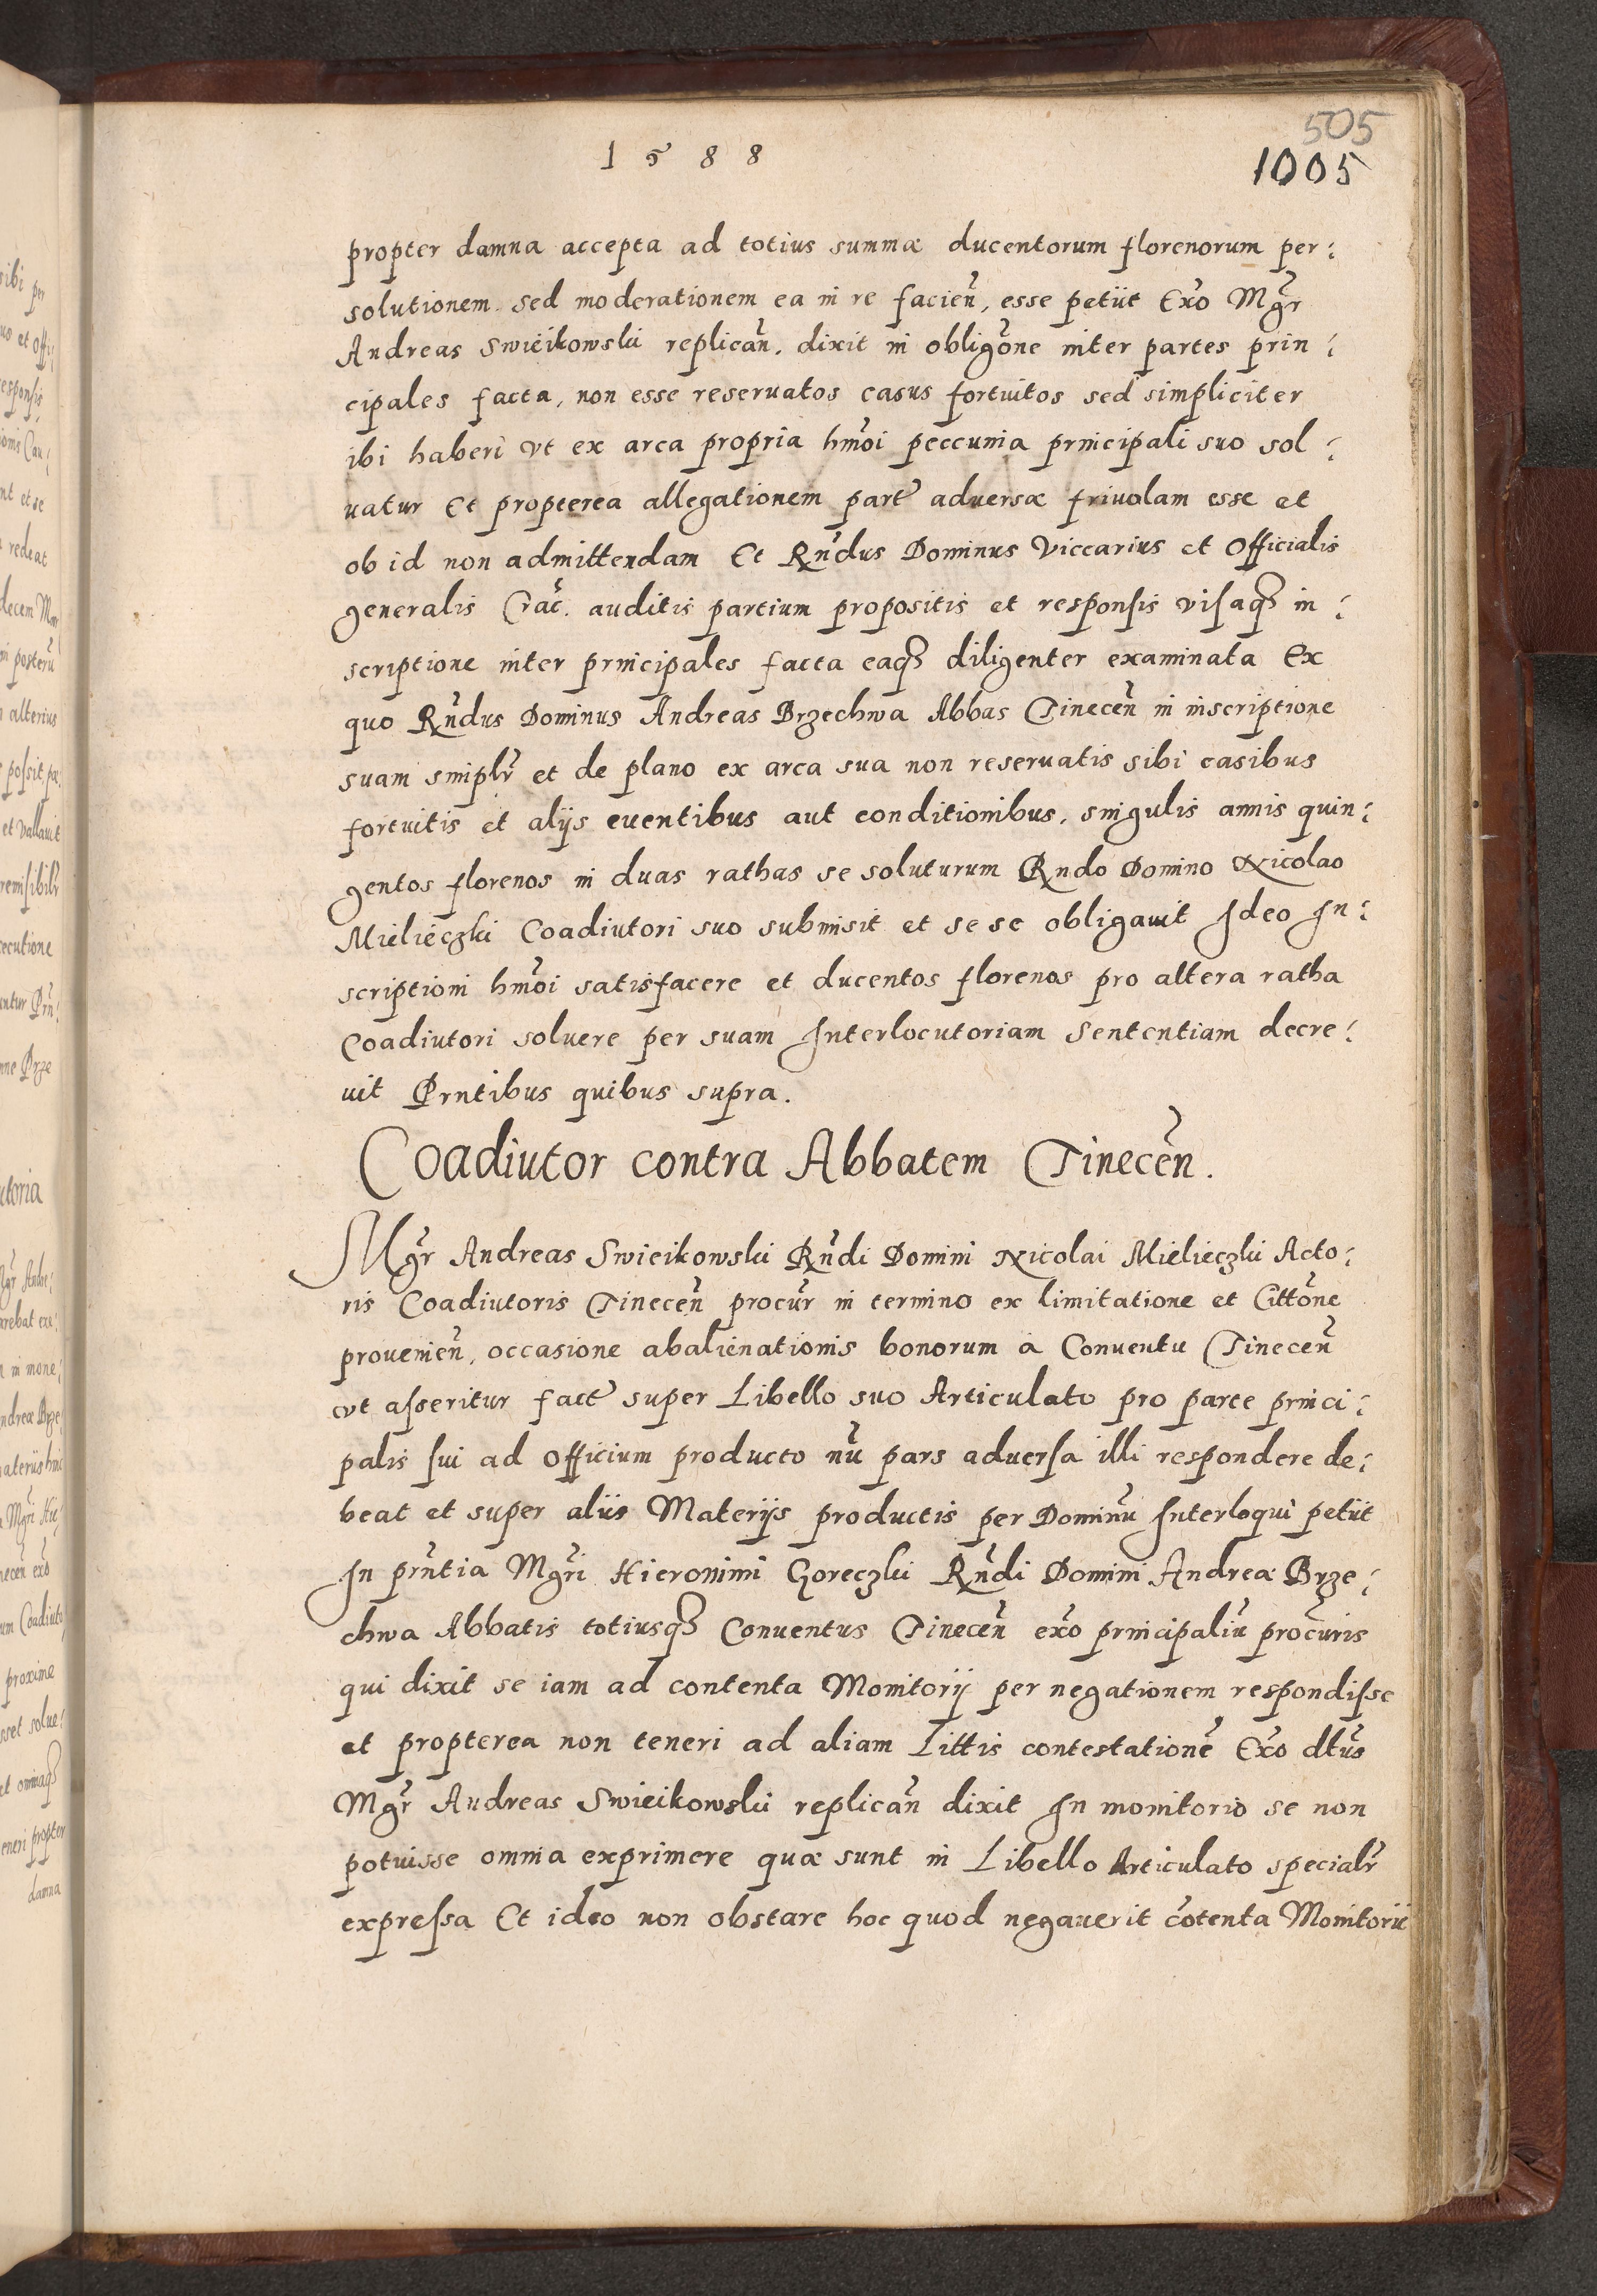 505
1588
1005
propter damna accepta ad totius summæ ducentorum florenorum per:
solutionem sed moderationem ea in re facien̄, esse petiit Ex̄o Mḡr
Andreas Swieikowski replican̄. dixit in obligōne inter partes prin:
cipales facta, non esse reseruatos casus fortuitos sed simpliciter
ibi haberi vt ex arca propria hm̄oi peccunia principali suo sol:
uatur Et propterea allegationem part̃ aduersæ friuolam esse et
ob id non admittendam Et Rn̄dus Dominus Viccarius et Officialis
generalis Crac̄. auditis partium propositis et responsis visaqȝ in:
scriptione inter principales facta eaqȝ diligenter examinata Ex
quo Rn̄dus Dominus Andreas Brzechwa Abbas Tinecen̄ in inscriptione
suam simplr̄ et de plano ex arca sua non reseruatis sibi casibus
fortuitis et alijs euentibus aut conditionibus, singulis annis quin:
gentos florenos in duas rathas se soluturum Rndo Domino Nicolao
Mielieczki Coadiutori suo submisit et se se obligauit Ideo In:
scriptioni hm̄oi satisfacere et ducentos florenos pro altera ratha
Coadiutori soluere per suam Interlocutoriam Sententiam decre:
uit Prntibus quibus supra.
Coadiutor contra Abbatem Tinecen̄.
Mḡr Andreas Swieikowski Rn̄di Domini Nicolai Mielieczki Acto:
ris Coadiutoris Tinecen̄ procur̄ in termino ex limitatione et Cittōne
prouenien̄, occasione abalienationis bonorum a Conuentu Tinecen̄
vt asseritur fact̃ super Libello suo Articulato pro parte princi:
palis sui ad Officium producto nū pars aduersa illi respondere de:
beat et super aliis Materijs productis per Dominū Interloqui petiit
In prn̄tia Mgr̄i Hieronimi Goreczki Rn̄di Domini Andreæ Brze:
chwa Abbatis totiusqȝ Conuentus Tinecen̄ ex̄o principaliū procūris
qui dixit se iam ad contenta Monitorij per negationem respondisse
et propterea non teneri ad aliam Littis contestationē Ex̄o dtūs
Mḡr Andreas Swieikowski replican̄ dixit In monitorio se non
potuisse omnia exprimere quæ sunt in Libello Articulato specialr̄
expressa Et ideo non obstare hoc quod negauerit cōtenta Monitorii